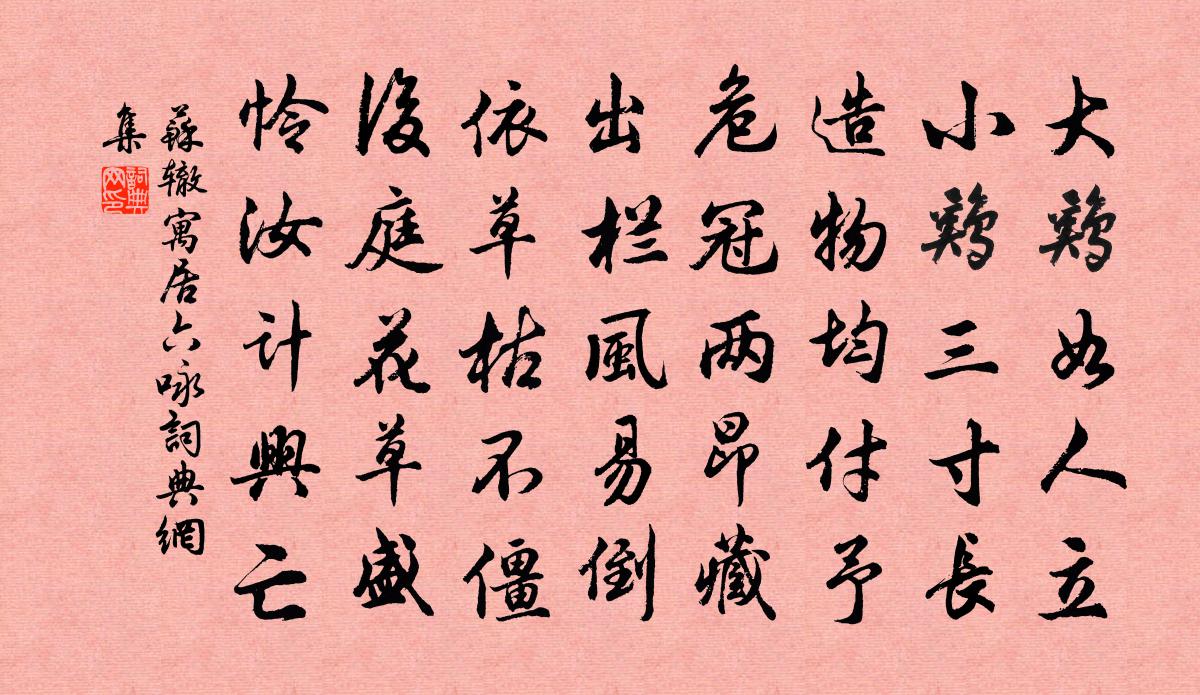 大鶏如人立
小鶏三寸長
造物均付予
危冠两昂藏
出栏風易倒
依草枯不僵
後庭花草盛
怜汝计興亡
蘇辙寓居六咏詞典網
集
詞典
网印